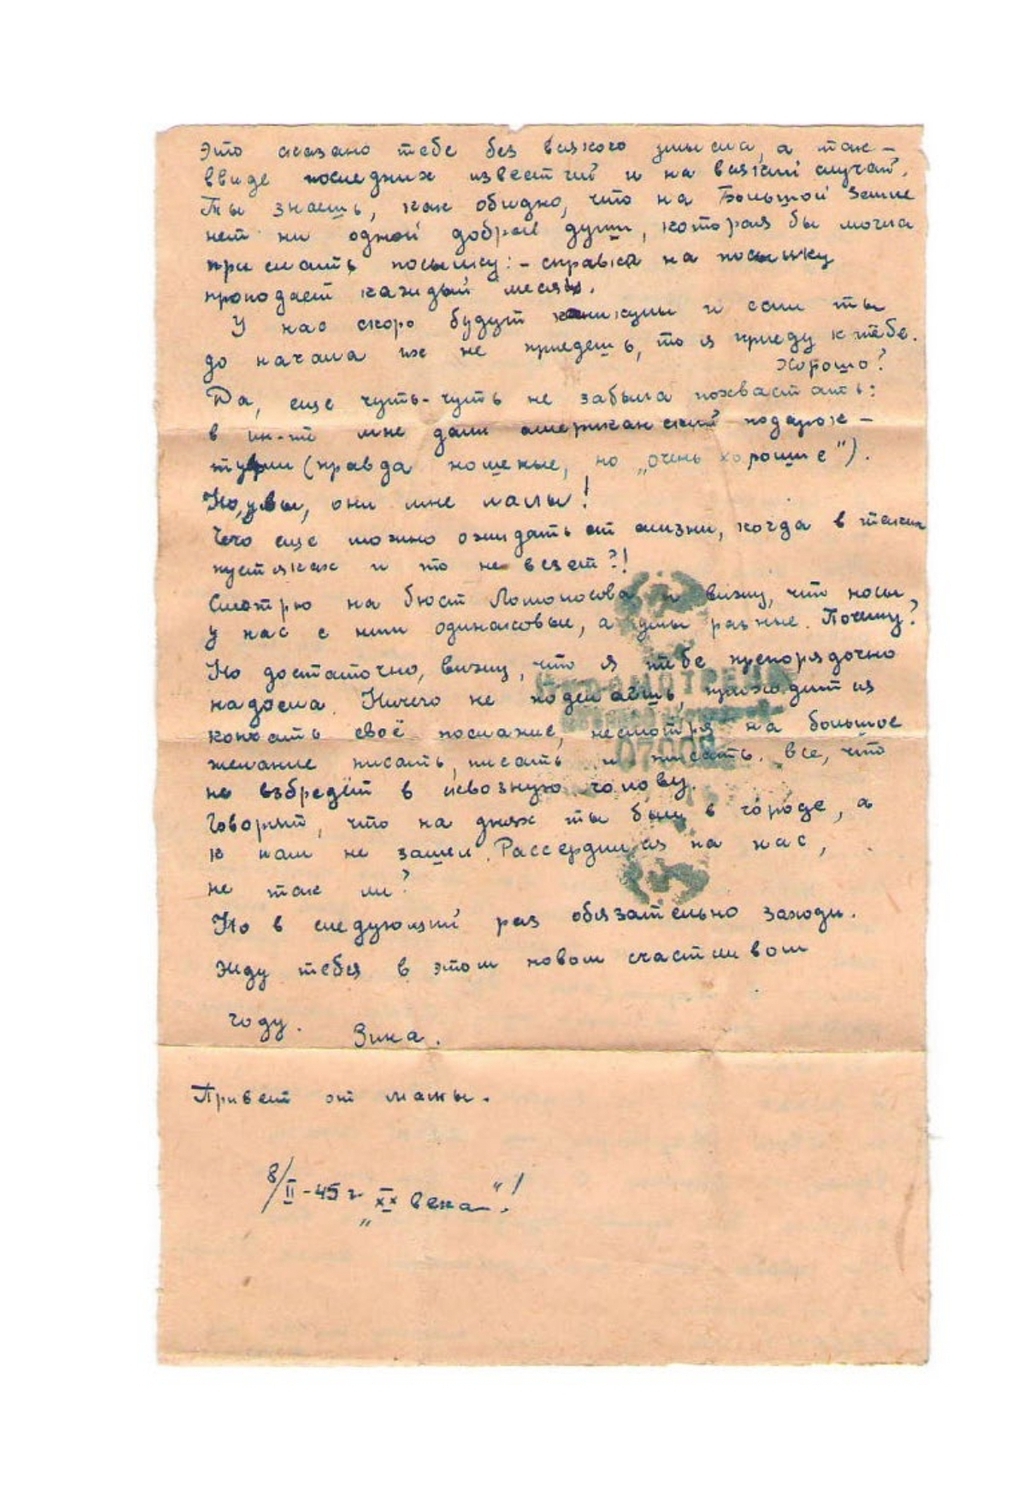 Это сказано тебе без всякого умысла, а так –
ввиде последних известий и на всякий случай.
Ты знаешь, как обидно, что на Большой Земле
нет ни одной доброй души, которая бы могла
прислать посылку: – справка на посылку
пропадает каждый месяц.
У нас скоро будут каникулы и если ты
до начала их не приедешь, то я приеду к тебе.
Хорошо?
Да, еще чуть-чуть не забыла похвастать:
в ин-те мне дали американский подарок –
туфли (правда ношеные, но „очень хорошие").
Но, увы, они мне малы!
Чего еще можно ожидать от жизни, когда в таких
пустяках и то не везет?!
Смотрю на бюст Ломоносова и вижу, что носы
у нас с ним одинаковые, а умы разные. Почему?
Но достаточно, вижу, что я тебе препорядочно
надоела. Ничего не поделаешь, приходится
кончать своё послание, несмотря на большое
желание писать, писать и писать все, что
не взбредёт в сквозную голову.
Говорят, что на днях ты был в городе, а
к нам не зашел. Рассердился на нас,
не так ли?
Но в следующий раз обязательно заходи.
Жду тебя в этом новом счастливом
году. Зина.
Привет от мамы.
8/II-45 г „XX века"!
ПРОСМОТРЕНО
Военной Цензурой